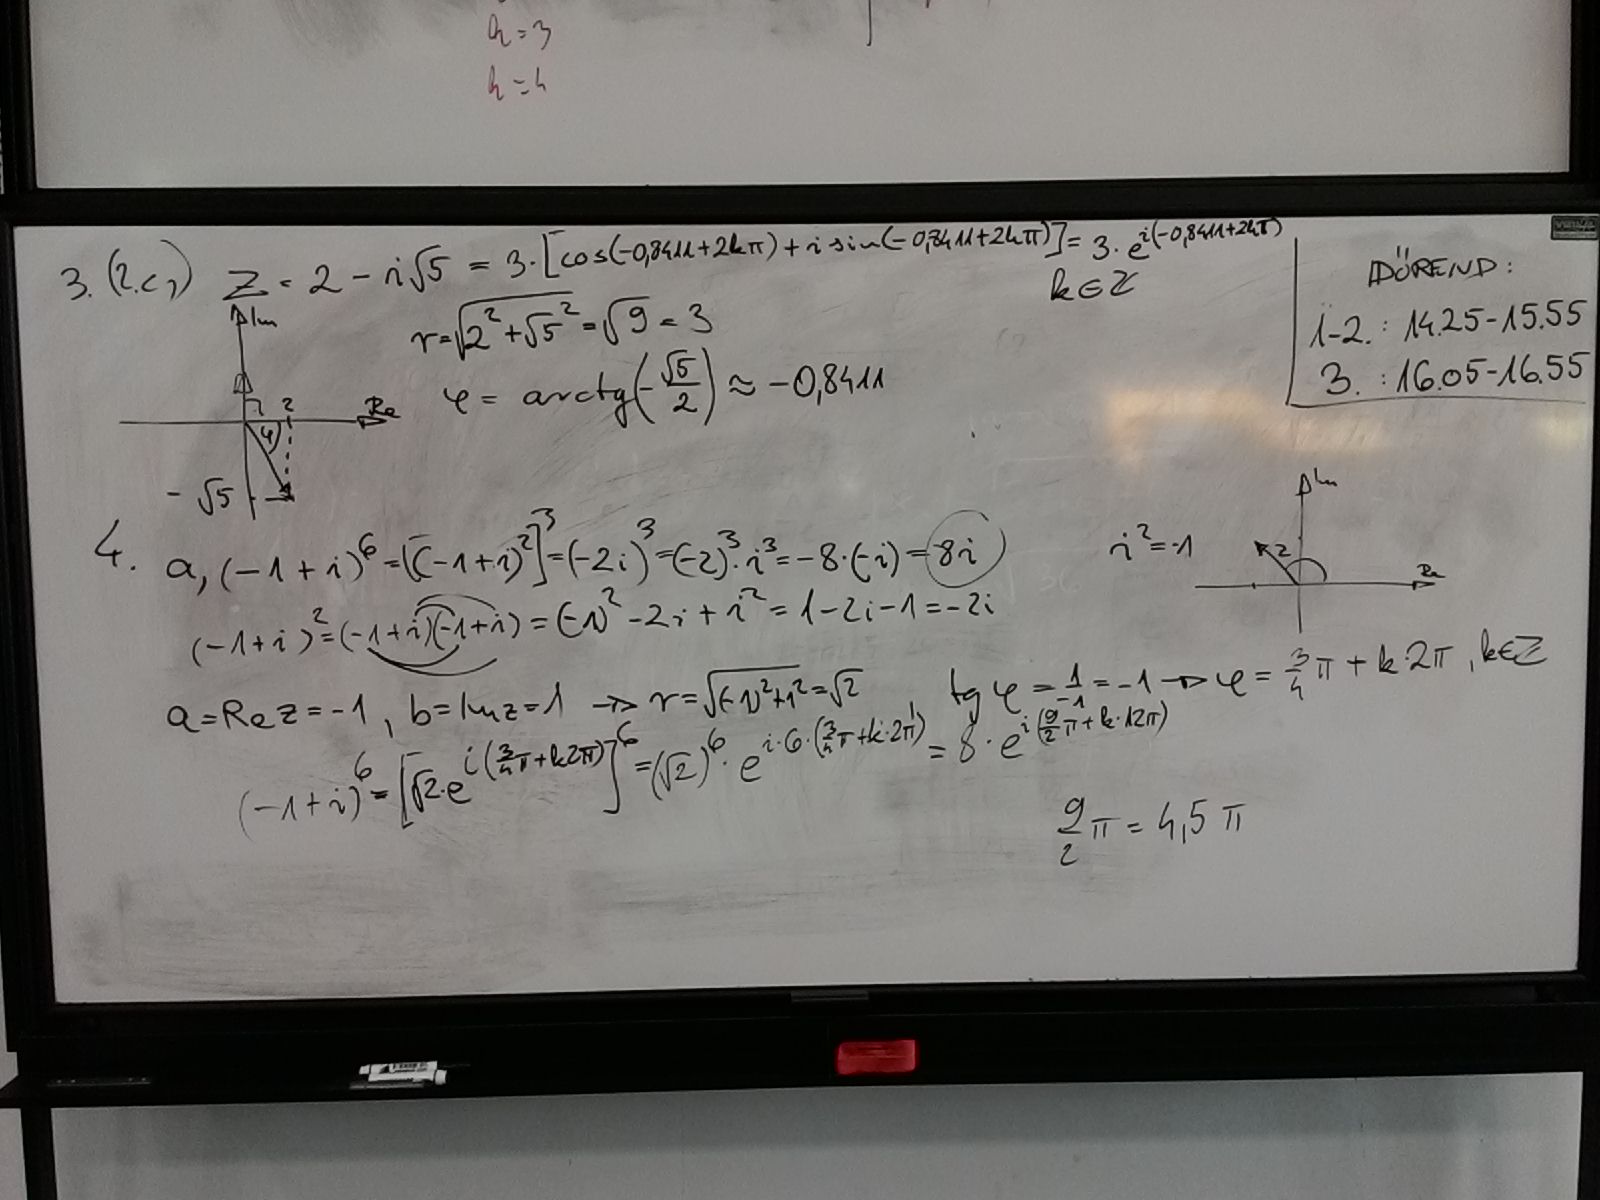 h=3
h=4
3. (2.c,) Z = 2 - i√5 = 3·[cos(-0,8411+2kπ)+i sin(-0,8411+2kπ)] = 3·e^{i(-0,8411+2kπ)}
k∈Z
r=√(2²+√5²)=√9=3
φ = arctg(-√5/2) ≈ -0,8411
Im
2
Re
φ
-√5
IDŐREND:
1-2.: 14.25-15.55
3. : 16.05-16.55
4. a, (-1+i)⁶=[(-1+i)²]³=(-2i)³=(-2)³·i³=-8·(-i)=8i
i²=-1
Im
z
Re
(-1+i)²=(-1+i)(-1+i)=(-1)²-2i+i²=1-2i-1=-2i
a=Re z=-1, b=Im z=1 → r=√((-1)²+1²)=√2
tg φ = 1/-1 = -1 → φ = 3/4 π + k·2π, k∈Z
(-1+i)⁶=[√2·e^{i(3/4π+k2π)}]⁶=(√2)⁶·e^{i·6·(3/4π+k·2π)}=8·e^{i(9/2π+k·12π)}
9/2 π = 4,5 π